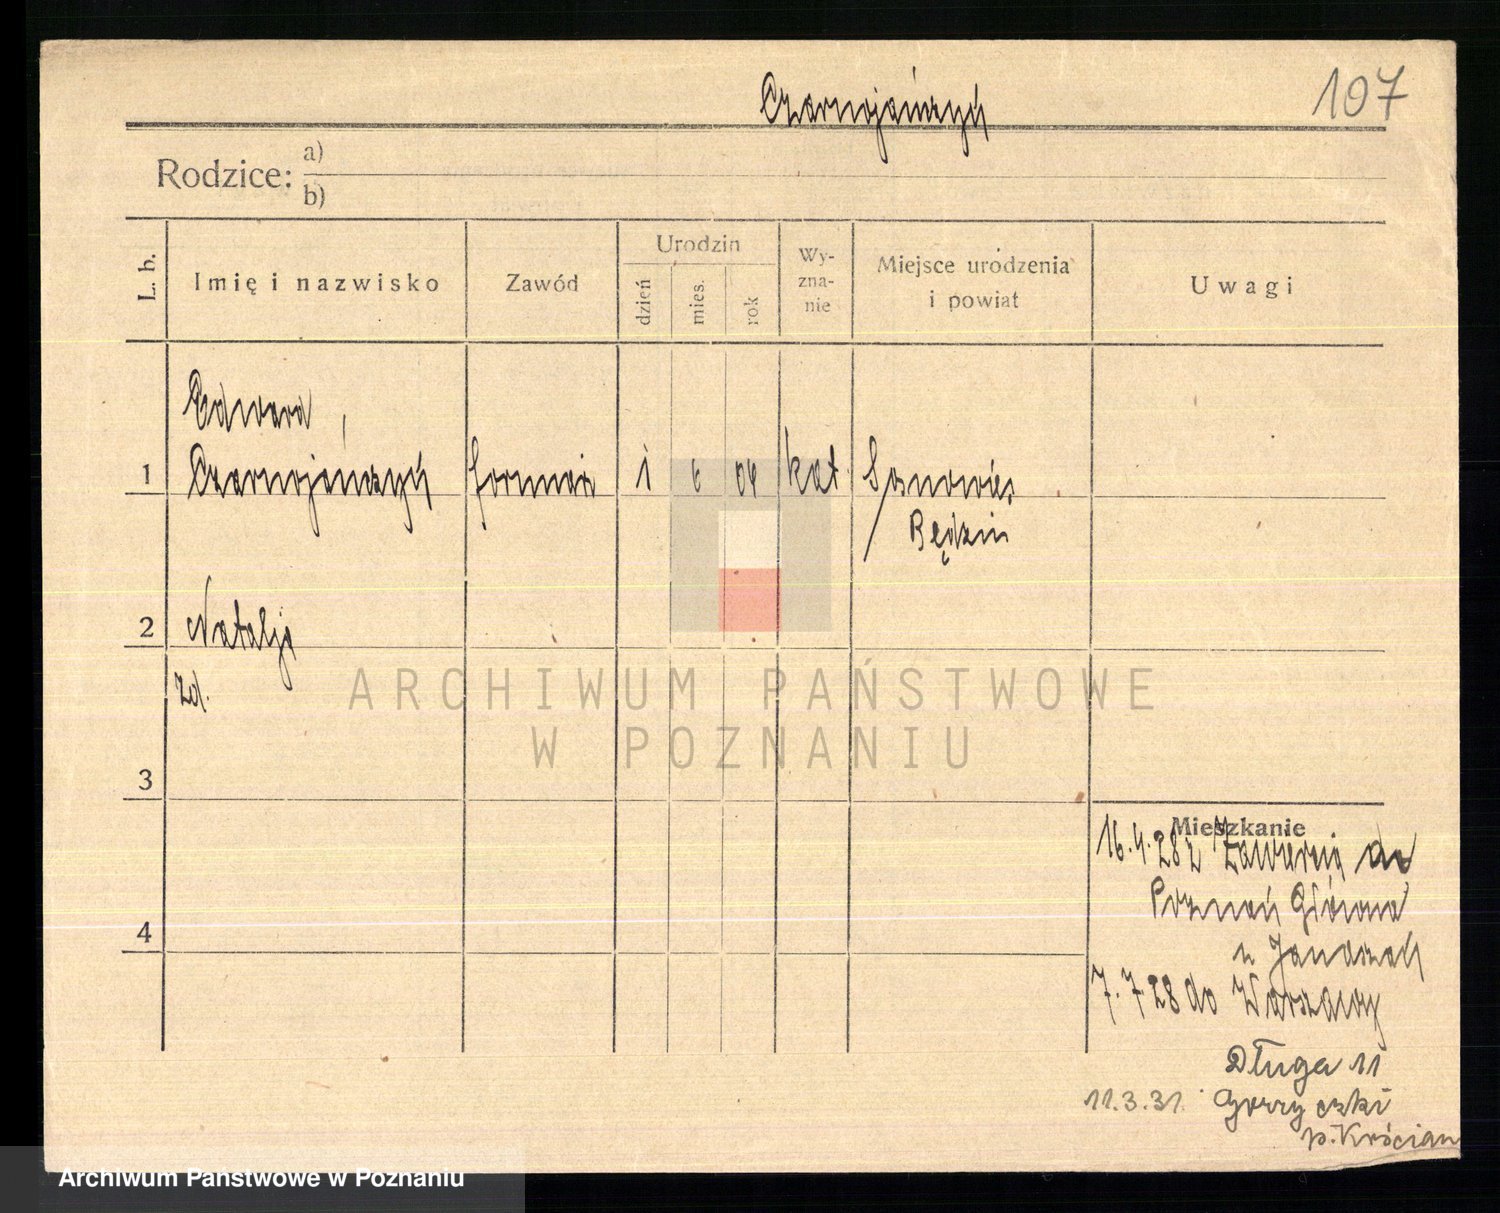 107
Czarnojańczyk
Rodzice:
a)
b)
L. b.
Imię i nazwisko
Zawód
Urodzin
dzień
mies.
rok
Wy-
zna-
nie
Miejsce urodzenia
i powiat
Uwagi
Edward
1 Czarnojańczyk formierz 1 6 04 kat Sosnowiec
Będzin
2 Natalja
zd.
ARCHIWUM PAŃSTWOWE
W POZNANIU
3
Mieszkanie
16.4.28 z Zawiercia do
Poznań Główna
u
4
7.7.28 do Warszawy
Długa 11
11.3.31. Goryczki
Archiwum Państwowe w Poznaniu